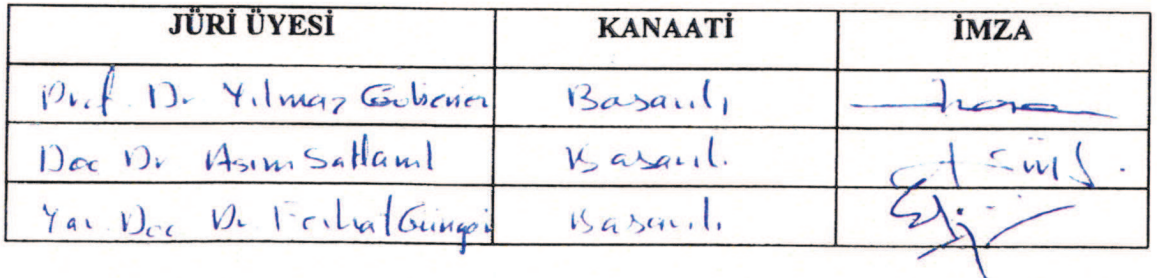 JÜRİ ÜYESİ KANAATİ İMZA
Prof. Dr. Yılmaz Başarılı
Doc Dr Asım Başarılı
Yar. Doc Dr. Ferhat Güngör Başarılı